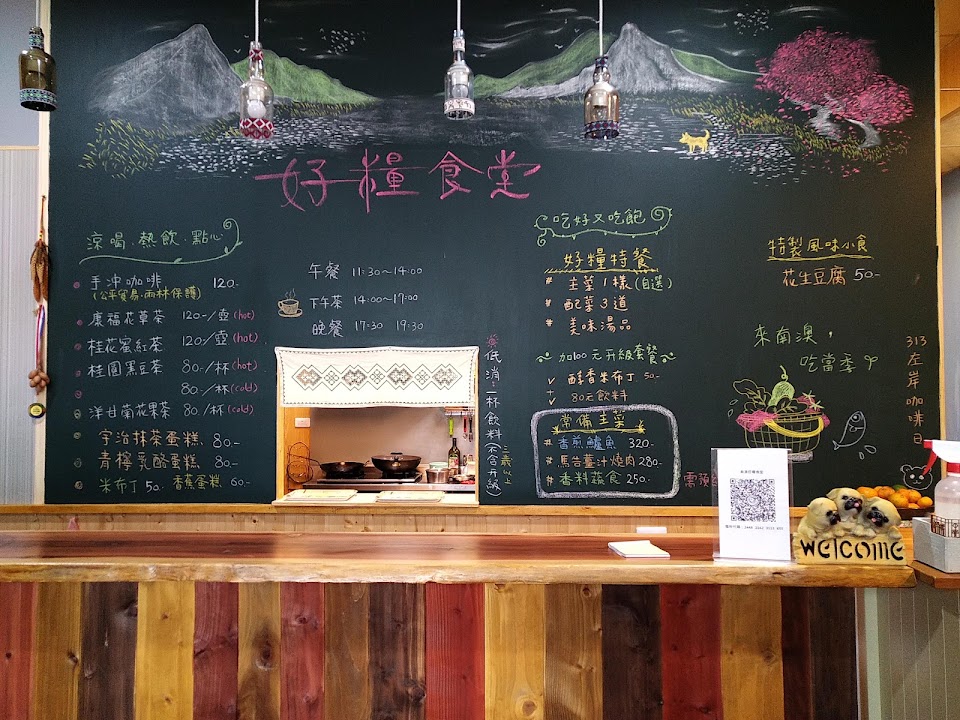 好糧食堂
涼喝、熱飲、點心
手沖咖啡 120-
(公平貿易.雨林保護)
康福花草茶 120-/壺(hot)
桂花蜜紅茶 120-/壺(hot)
桂圓黑豆茶 80-/杯(hot)
80-/杯(cold)
洋甘菊花果茶 80-/杯(cold)
宇治抹茶蛋糕 80-
青檸乳酪蛋糕 80-
米布丁 50- 香蕉蛋糕 60-
午餐 11:30~14:00
下午茶 14:00~17:00
晚餐 17:30 19:30
※低消:一杯飲料(不含升級)
三歲以上
吃好又吃飽
好糧特餐
# 主菜1樣(自選)
# 配菜3道
# 美味湯品
加100元升級套餐
v 醇香米布丁 50-
v 80元飲料
常備主菜
# 香煎鱸魚 320-
# 馬告薑汁燒肉 280-
# 香料蔬食 250-
需預
特製風味小食
花生豆腐 50-
來南澳,
吃當季
313左岸咖啡日
welcome